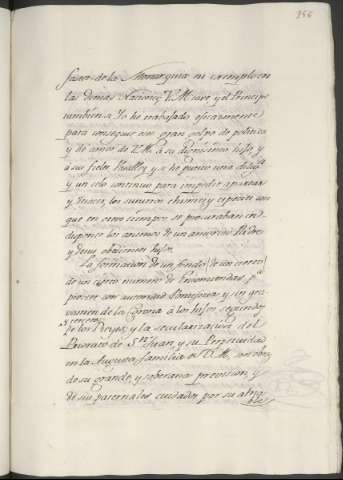 356
favor de la Monarquia ni exemplo en
las demas Naciones. V. M. save y el Principe
tambien q.e Yo he trabajado eficazmente
para conseguir este gran golpe de politica
y de amor de V. M. à su dignisimo hijo, y
à sus fieles Vasallos y q.e he puesto una dilig.a
y un celo continuo para impedir, apartar
y vencer, los susurros chismes y especies con
que en otros tiempos se procuraban in-
disponer los animos de un amoroso Padre
y de un obediente hijo.
La formacion de un fondo
de un cierto numero de Encomiendas, p.a
proveer con autoridad Pontificia y sin gra-
vamen de la Corona à los hijos segundos
de los Reyes, y la secularizacion del
Priorato de S.n Juan, y su Perpetuidad
en la Augusta familia de V. M. son obra
de su grande, y soberana prevision, y
de sus paternales cuidados por su